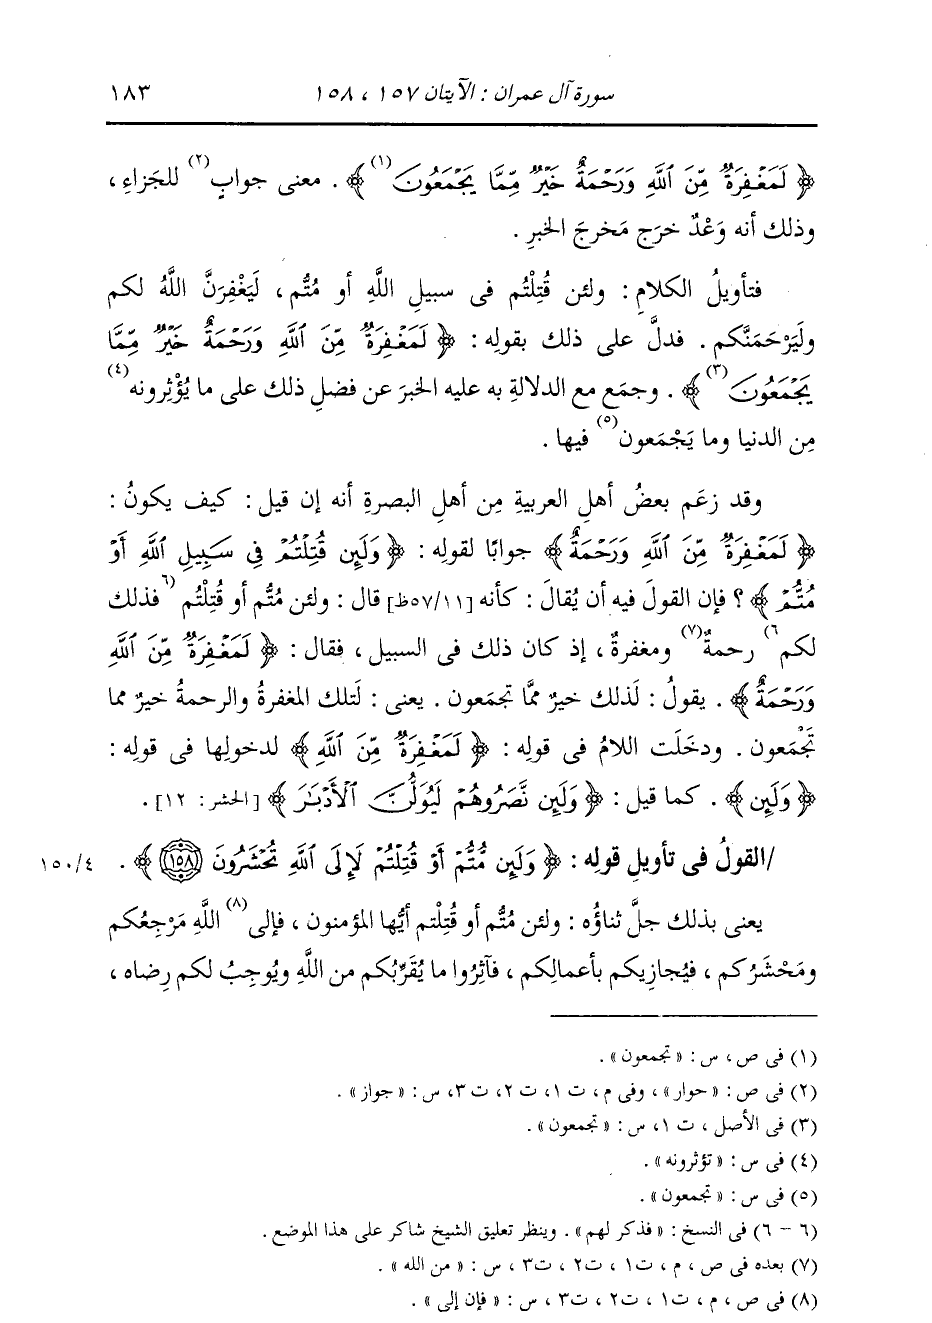 سورة آل عمران : الآيتان ١٥٧ ، ١٥٨ ١٨٣
﴿ لَمَغْفِرَةٌ مِّنَ ٱللَّهِ وَرَحْمَةٌ خَيْرٌ مِّمَّا يَجْمَعُونَ(١) ﴾ . معنى جوابٍ(٢) للجَزاءِ ،
وذلك أنه وَعْدٌ خرَج مَخرجَ الخبرِ .
فتأويلُ الكلامِ : ولئن قُتِلْتُم فى سبيلِ اللَّهِ أو مُتُّم ، لَيَغْفِرَنَّ اللَّهُ لكم
ولَيَرْحَمَنَّكم . فدلَّ على ذلك بقولِه : ﴿ لَمَغْفِرَةٌ مِّنَ ٱللَّهِ وَرَحْمَةٌ خَيْرٌ مِّمَّا
يَجْمَعُونَ(٣) ﴾ . وجمَع مع الدلالةِ به عليه الخبرَ عن فضلِ ذلك على ما يُؤْثِرونه(٤)
مِن الدنيا وما يَجْمَعون(٥) فيها .
وقد زعَم بعضُ أهلِ العربيةِ مِن أهلِ البصرةِ أنه إن قيل : كيف يكونُ :
﴿ لَمَغْفِرَةٌ مِّنَ ٱللَّهِ وَرَحْمَةٌ ﴾ جوابًا لقولِه : ﴿ وَلَئِن قُتِلْتُمْ فِى سَبِيلِ ٱللَّهِ أَوْ
مُتُّمْ ﴾ ؟ فإن القولَ فيه أن يُقالَ : كأنه [٥٧/١١ظ] قال : ولئن مُتُّم أو قُتِلْتُم (٦فذلك
لكم٦) رحمةٌ(٧) ومغفرةٌ ، إذ كان ذلك فى السبيل ، فقال : ﴿ لَمَغْفِرَةٌ مِّنَ ٱللَّهِ
وَرَحْمَةٌ ﴾ . يقولُ : لَذلك خيرٌ ممَّا تجمَعون . يعنى : لَتلك المغفرةُ والرحمةُ خيرٌ مما
تَجْمَعون . ودخَلَت اللامُ فى قولِه : ﴿ لَمَغْفِرَةٌ مِّنَ ٱللَّهِ ﴾ لدخولِها فى قولِه :
﴿ وَلَئِن ﴾ . كما قيل : ﴿ وَلَئِن نَّصَرُوهُمْ لَيُوَلُّنَّ ٱلْأَدْبَٰرَ ﴾ [الحشر : ١٢] .
/القولُ فى تأويلِ قولِه : ﴿ وَلَئِن مُّتُّمْ أَوْ قُتِلْتُمْ لَإِلَى ٱللَّهِ تُحْشَرُونَ ١٥٨ ﴾ . ١٥٠/٤
يعنى بذلك جلَّ ثناؤُه : ولئن مُتُّم أو قُتِلْتم أيُّها المؤمنون ، فإلى(٨) اللَّهِ مَرْجِعُكم
ومَحْشَرُكم ، فيُجازِيكم بأعمالِكم ، فآثِرُوا ما يُقَرِّبُكم من اللَّهِ ويُوجِبُ لكم رِضاه ،
(١) فى ص ، س : « تجمعون » .
(٢) فى ص : « حوار » ، وفى م ، ت ١، ت ٢، ت ٣، س : « جواز » .
(٣) فى الأصل ، ت ١، س : « تجمعون » .
(٤) فى س : « تؤثرونه » .
(٥) فى س : « تجمعون » .
(٦ - ٦) فى النسخ : « فذكر لهم » . وينظر تعليق الشيخ شاكر على هذا الموضع .
(٧) بعده فى ص ، م ، ت١ ، ت٢ ، ت٣ ، س : « من الله » .
(٨) فى ص ، م ، ت١ ، ت٢ ، ت٣ ، س : « فإن إلى » .